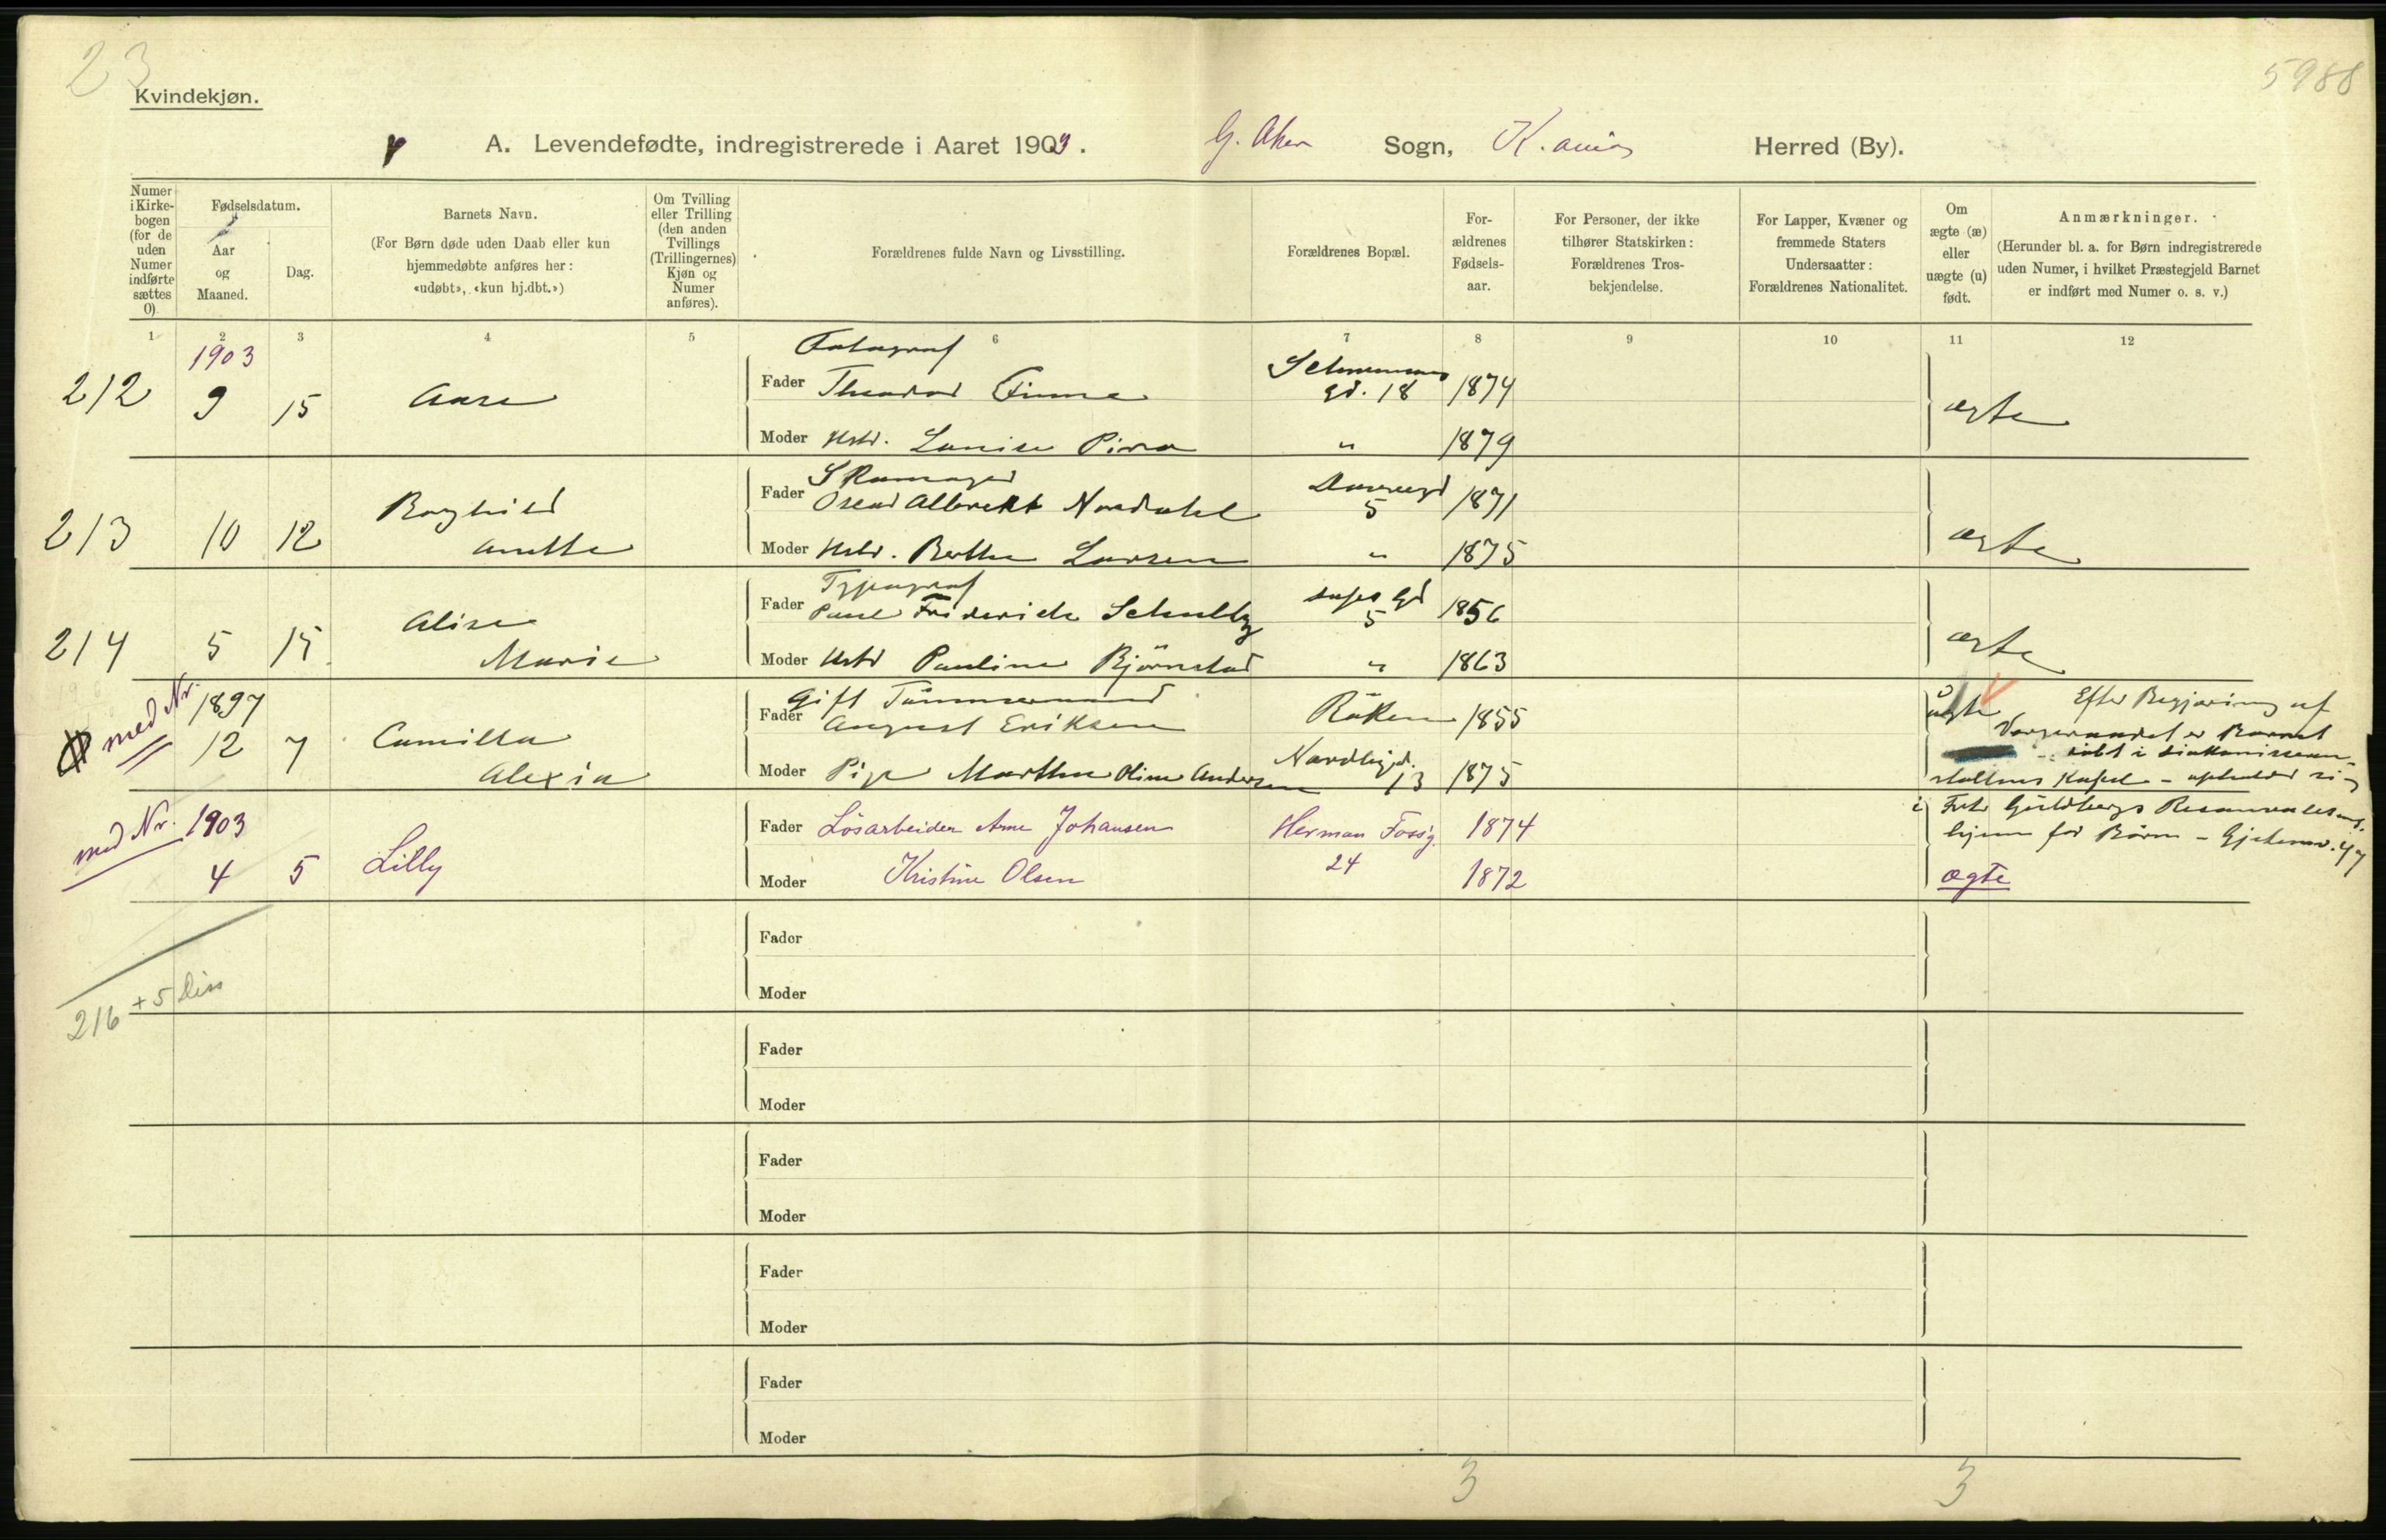 23
5988
Kvindekjøn.
A. Levendefødte, indregistrerede i Aaret 1903. G. Aker Sogn, K.ania Herred (By).
Numer i Kirke-bogen (for de uden Numer indførte sættes 0)
Fødselsdatum.
Aar og Maaned.
Dag.
Barnets Navn.
(For Børn døde uden Daab eller kun hjemmedøbte anføres her: «udøbt», «kun hj.dbt.»)
Om Tvilling eller Trilling (den anden Tvillings (Trillingernes) Kjøn og Numer anføres).
Forældrenes fulde Navn og Livsstilling.
Forældrenes Bopæl.
For-ældrenes Fødsels-aar.
For Personer, der ikke tilhører Statskirken: Forældrenes Tros-bekjendelse.
For Lapper, Kvæner og fremmede Staters Undersaatter: Forældrenes Nationalitet.
Om ægte (æ) eller uægte (u) født.
Anmærkninger.
(Herunder bl. a. for Børn indregistrerede uden Numer, i hvilket Præstegjeld Barnet er indført med Numer o. s. v.)
1 2 3 4 5 6 7 8 9 10 11 12
1903 Fotograf
212 9 15 Aase Fader Theodor Finne gd. 18 1874 ægte
Moder Hstr. Louise 1879
Skomager
213 10 12 Borghild Fader Oscar Albrekt Nordahl 5 1871 ægte
Anette Moder Hstr. Berthe Larsen " 1875
Typograf
214 5 15 Alise Fader Paul Frederick 5 1856 ægte
Marie Moder Hstr Pauline Bjørnstad " 1863
med Nr. 1897 Gift Tømmermand
12 7 Camilla Fader August Eriksen Røken 1855 uægte Efter Begjæring af
Alexia Moder Pige Marthe Oline Andersen 13 1875
med Nr. 1903
4 5 Lilly Fader Løsarbeider Arne Johansen Herman Fossg. 1874
24
Moder Kristine Olsen 1872 ægte
hjem for Børn
Fader
Moder
216 + 5 Diss
Fader
Moder
Fader
Moder
Fader
Moder
Fader
Moder
3 3